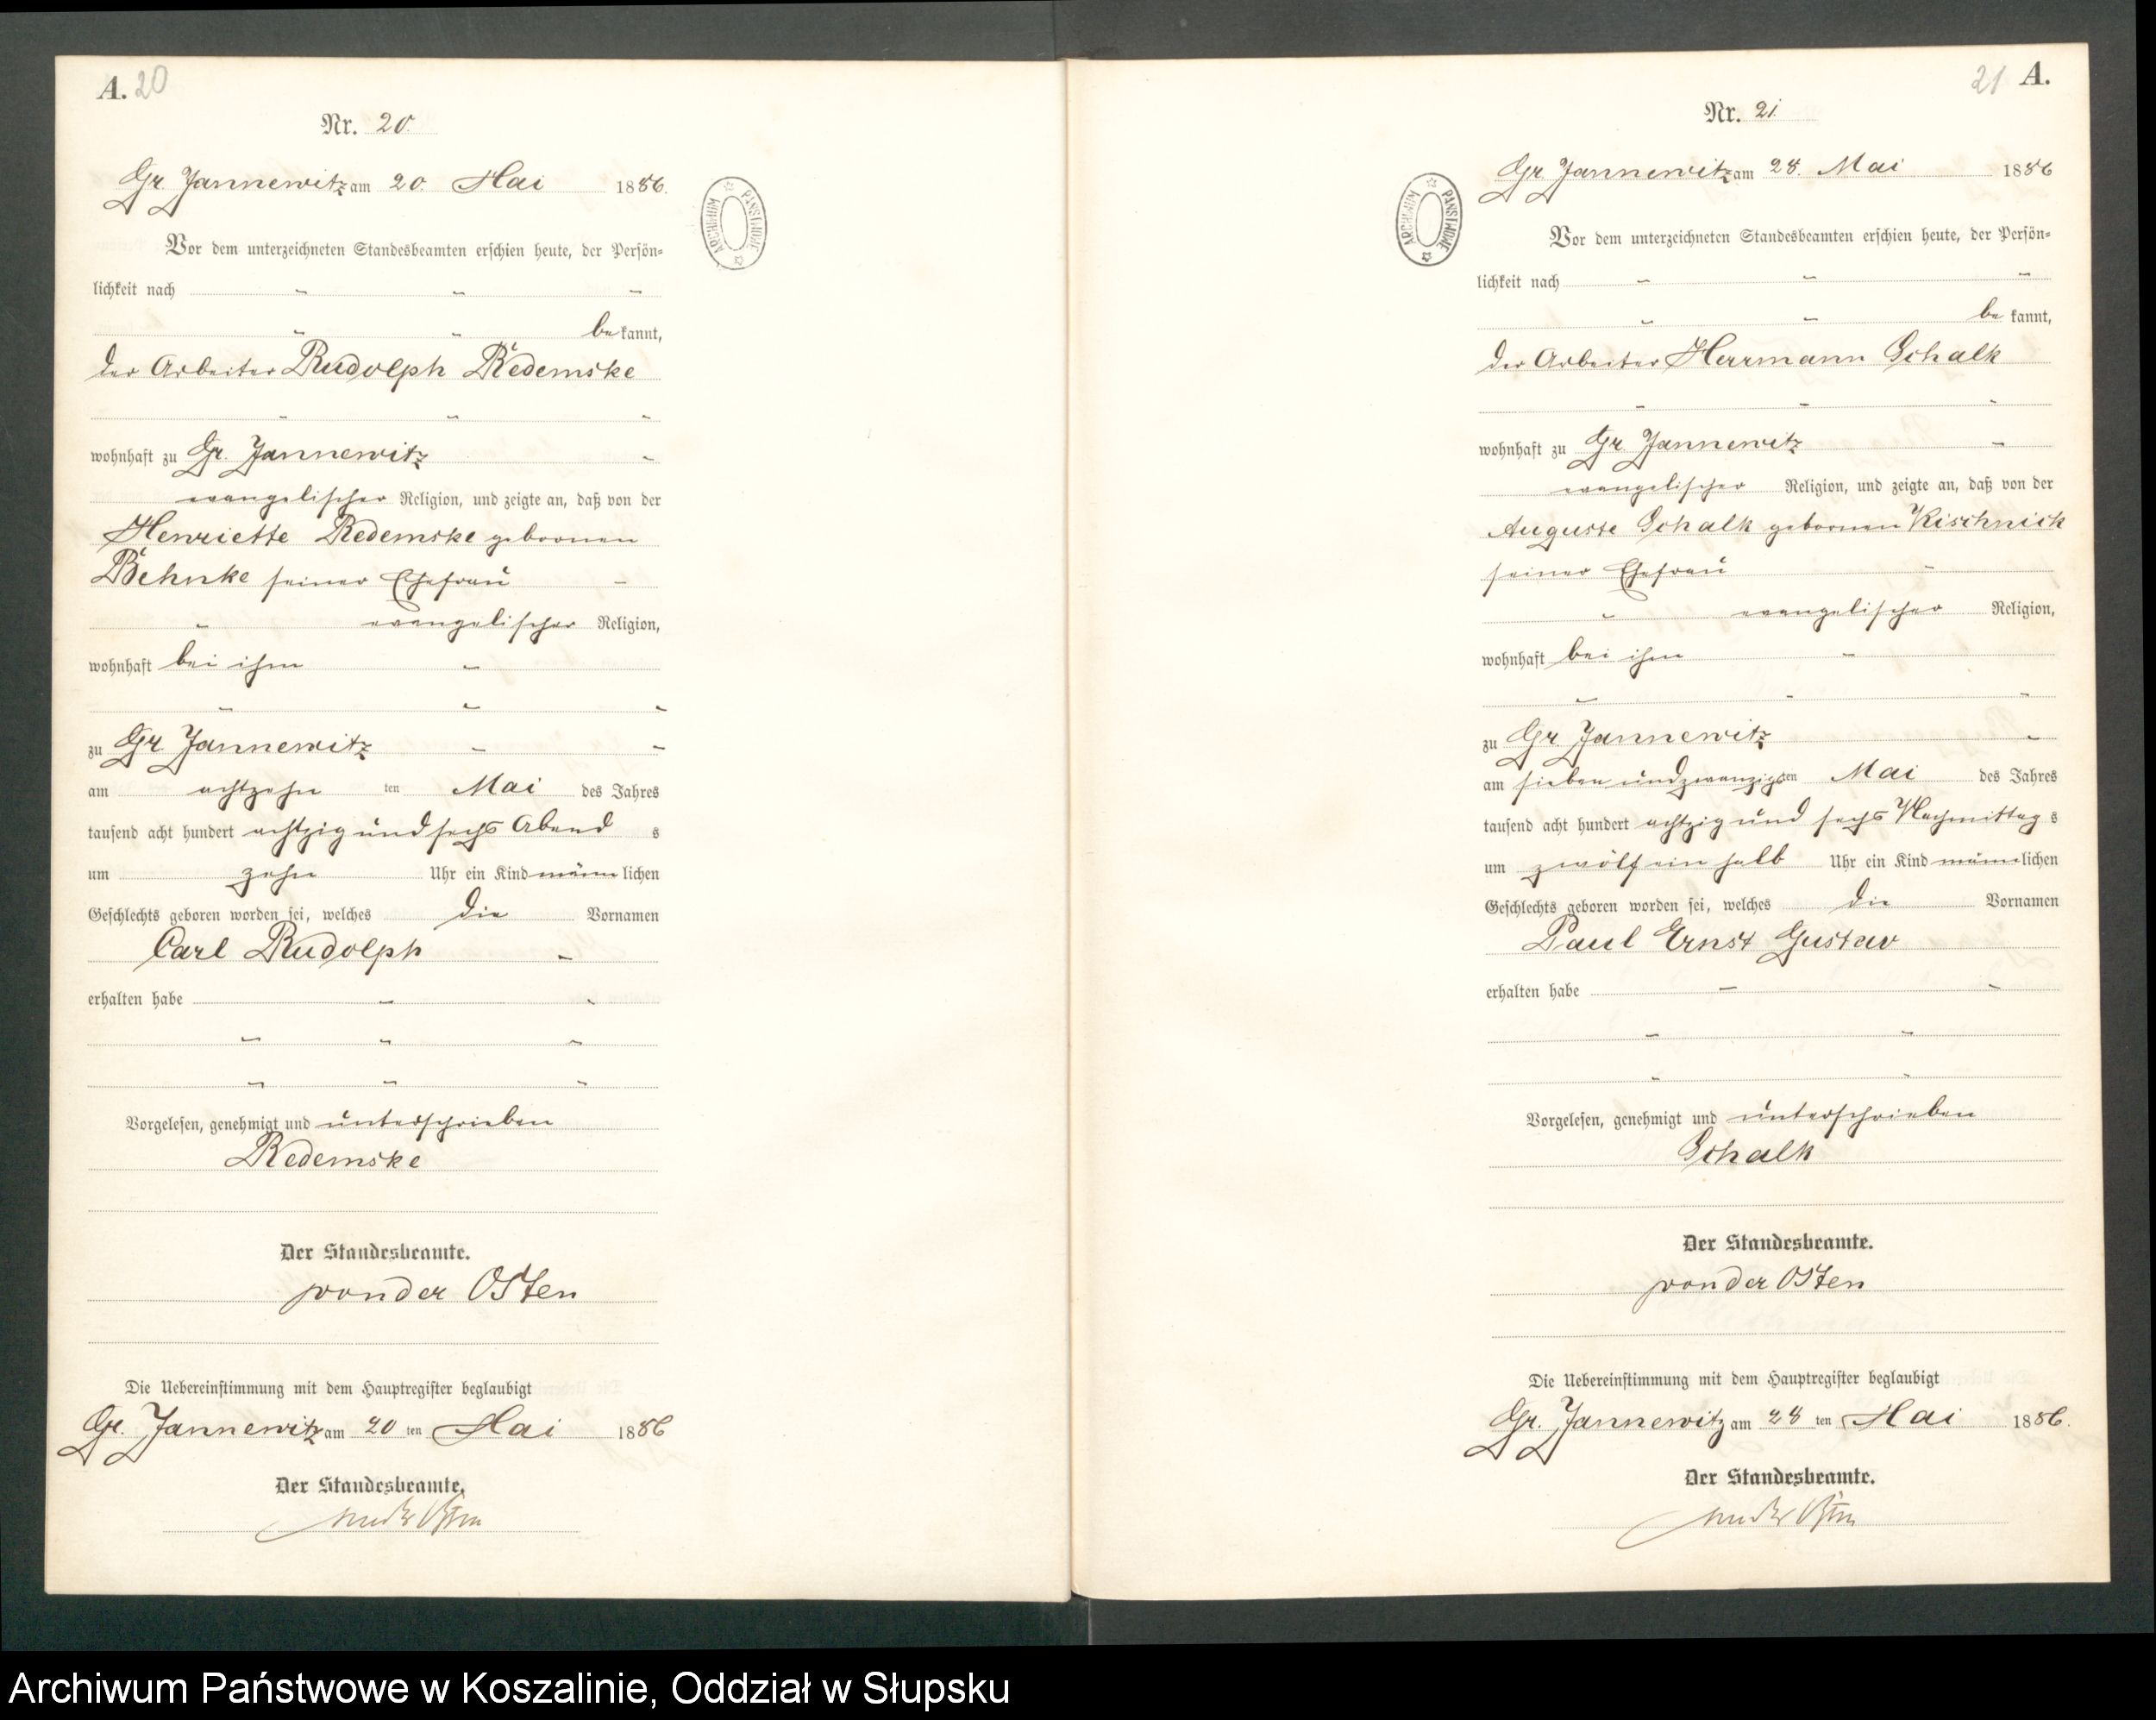 A. 20
Nr. 20.
Gr. Jannewitz am 20. Mai 1886.
Vor dem unterzeichneten Standesbeamten erschien heute, der Persön-
lichkeit nach
bekannt,
der Arbeiter Rudolph Redemske
wohnhaft zu Gr. Jannewitz
evangelischer Religion, und zeigte an, daß von der
Henriette Redemske geborenen
Behnke seiner Ehefrau
evangelischer Religion,
wohnhaft bei ihm
zu Gr. Jannewitz
am achtzehn ten Mai des Jahres
tausend acht hundert achtzig und sechs Abend s
um zehn Uhr ein Kind männlichen
Geschlechts geboren worden sei, welches die Vornamen
Carl Rudolph
erhalten habe
Vorgelesen, genehmigt und unterschrieben
Redemske
Der Standesbeamte.
von der Osten
Die Uebereinstimmung mit dem Hauptregister beglaubigt
Gr. Jannewitz am 20 ten Mai 1886
Der Standesbeamte.
von der Osten
ARCHIWUM PAŃSTWOWE
21 A.
Nr. 21.
Gr. Jannewitz am 28. Mai 1886
Vor dem unterzeichneten Standesbeamten erschien heute, der Persön-
lichkeit nach
bekannt,
der Arbeiter Herrmann Schalk
wohnhaft zu Gr. Jannewitz
evangelischer Religion, und zeigte an, daß von der
Auguste Schalk geborenen Kischnick
seiner Ehefrau
evangelischer Religion,
wohnhaft bei ihm
zu Gr. Jannewitz
am sieben und zwanzigsten Mai des Jahres
tausend acht hundert achtzig und sechs Nachmittag s
um zwölf ein halb Uhr ein Kind männlichen
Geschlechts geboren worden sei, welches die Vornamen
Paul Ernst Gustav
erhalten habe
Vorgelesen, genehmigt und unterschrieben
Schalk
Der Standesbeamte.
von der Osten
Die Uebereinstimmung mit dem Hauptregister beglaubigt
Gr. Jannewitz am 28 ten Mai 1886.
Der Standesbeamte.
von der Osten
ARCHIWUM PAŃSTWOWE
Archiwum Państwowe w Koszalinie, Oddział w Słupsku